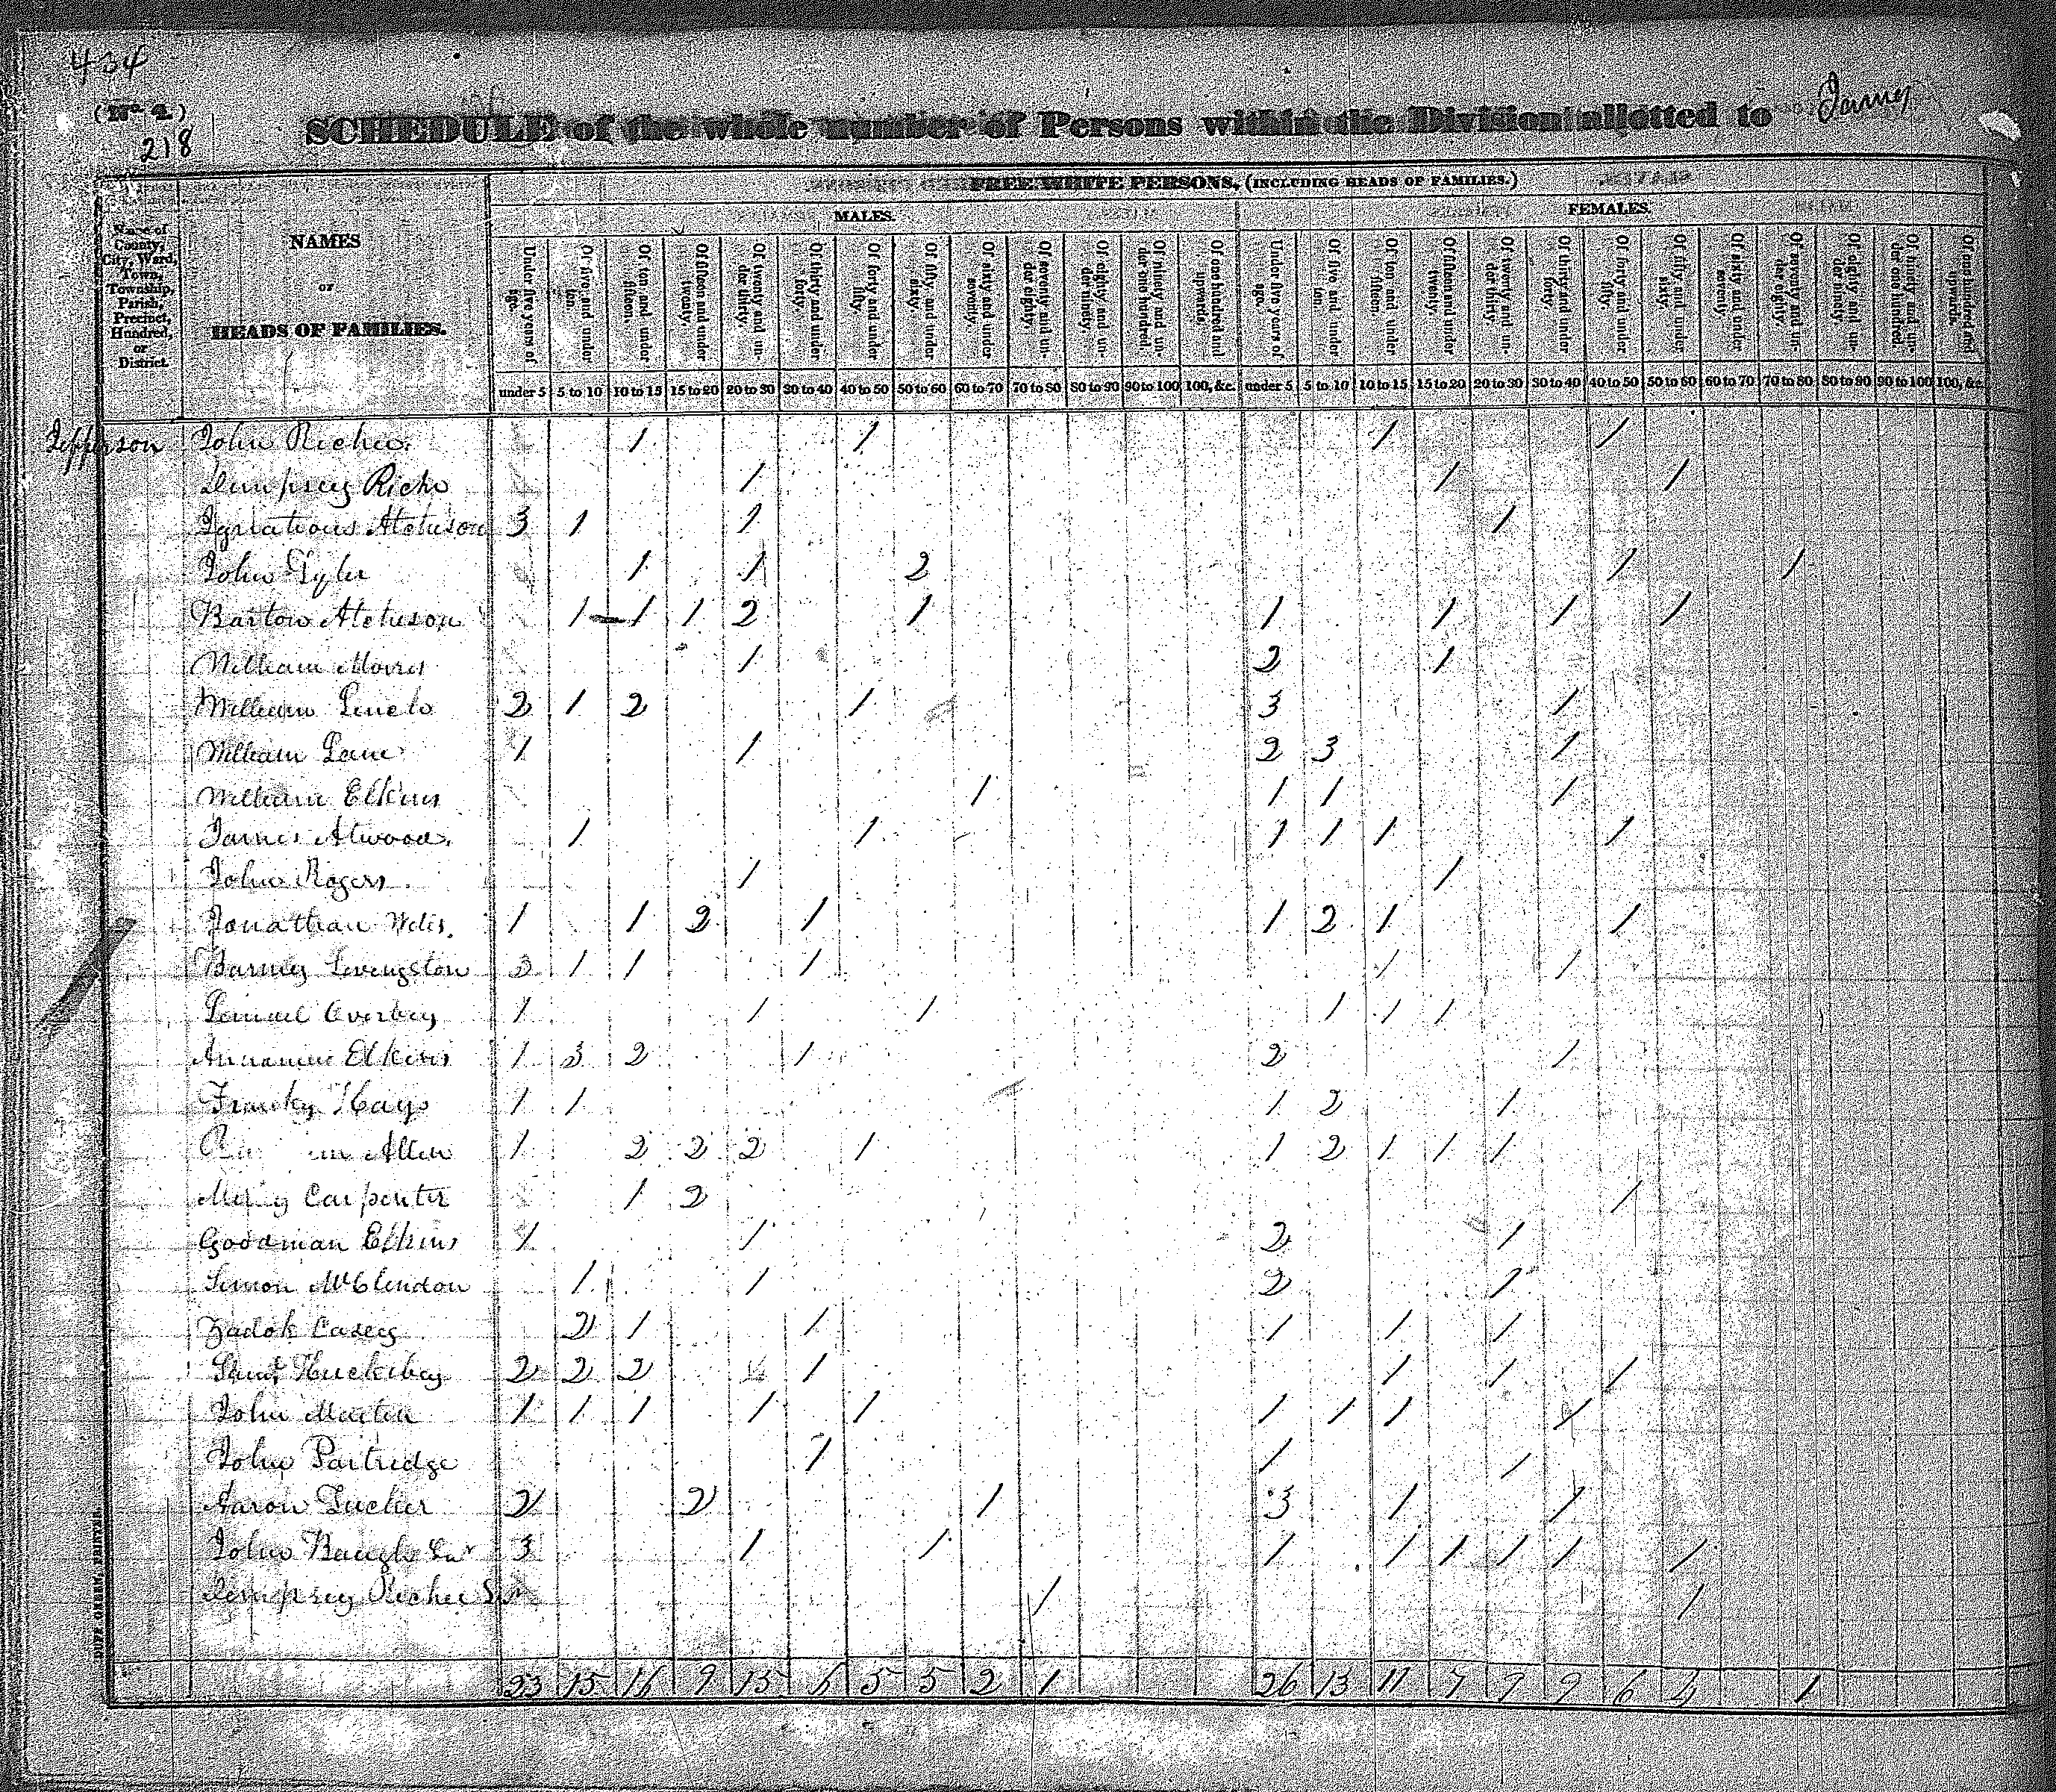 434
(No. 4.)
218
SCHEDULE of the whole number of Persons within the Division allotted to
FREE WHITE PERSONS, (INCLUDING HEADS OF FAMILIES.)
MALES. FEMALES.
Name of County, City, Ward, Town, Township, Parish, Precinct, Hundred, or District.
NAMES
or
HEADS OF FAMILIES.
Under five years of age. Of five and under ten. Of ten and under fifteen. Of fifteen and under twenty. Of twenty and under thirty. Of thirty and under forty. Of forty and under fifty. Of fifty and under sixty. Of sixty and under seventy. Of seventy and under eighty. Of eighty and under ninety. Of ninety and under one hundred. Of one hundred and upwards. Under five years of age. Of five and under ten. Of ten and under fifteen. Of fifteen and under twenty. Of twenty and under thirty. Of thirty and under forty. Of forty and under fifty. Of fifty and under sixty. Of sixty and under seventy. Of seventy and under eighty. Of eighty and under ninety. Of ninety and under one hundred. Of one hundred and upwards.
under 5 5 to 10 10 to 15 15 to 20 20 to 30 30 to 40 40 to 50 50 to 60 60 to 70 70 to 80 80 to 90 90 to 100 100, &c. under 5 5 to 10 10 to 15 15 to 20 20 to 30 30 to 40 40 to 50 50 to 60 60 to 70 70 to 80 80 to 90 90 to 100 100, &c.
Jefferson John 1 1 1 1
Dempsey 1 1 1
3 1 1 1
John Tyler 1 1 2 1 1
Barton Atchison 1 1 1 2 1 1 1 1 1
William Morris 1 2 1
William 2 1 2 1 3 1
William Lane 1 1 2 3 1
William Elkins 1 1 1 1
James Atwood 1 1 1 1 1 1
John Rogers 1 1
Jonathan 1 1 2 1 1 2 1 1
Barney Livingston 3 1 1 1 1 1
Overbey 1 1 1 1 1 1
Elkins 1 3 2 1 2 1
Franky Hays 1 1 1 2 1
Allen 1 2 2 2 1 1 2 1 1 1
Carpenter 1 2 1
Goodman Elkins 1 1 2 1
McClendon 1 1 2 1
Zadok Casey 2 1 1 1 1 1
Huckibay 2 2 2 1 1 1 1
John Martin 1 1 1 1 1 1 1 1 1
John Partridge 1 1 1
Aaron 2 2 1 3 1 1
John Baugh 3 1 1 1 1 1 1 1 1
Dempsey 1 1
23 15 16 9 15 6 5 5 2 1 26 13 11 7 9 9 6 4 1
DUFF GREEN, PRINTER.